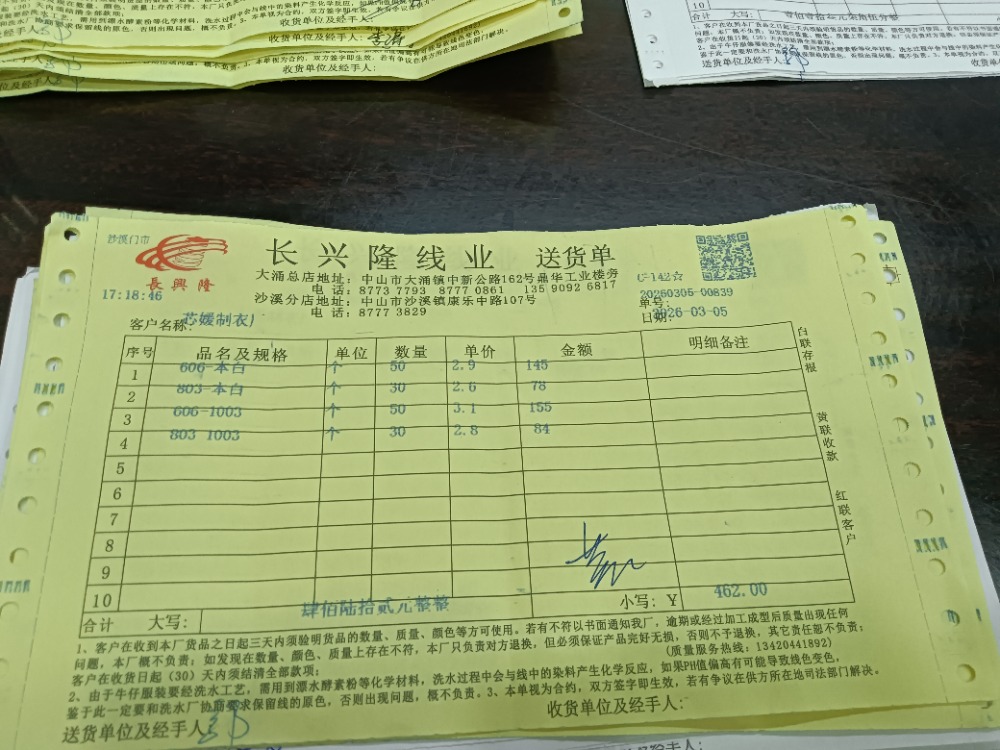 收货单位及经手人:
收货单位及经手人:
收货单位及经手人:
10
合计 大写:
送货单位及经手人
沙溪门市
長興隆
17:18:46
长兴隆线业 送货单
大涌总店地址: 中山市大涌镇中新公路162号鼎华工业楼旁
电话: 8773 7793 8777 0861 135 9092 6817
沙溪分店地址: 中山市沙溪镇康乐中路107号
电话: 8777 3829
单号: 20260305-00839
日期: 2026-03-05
客户名称: 芯媛制衣厂
序号 品名及规格 单位 数量 单价 金额 明细备注
1 606-本白 个 50 2.9 145
2 803-本白 个 30 2.6 78
3 606-1003 个 50 3.1 155
4 803 1003 个 30 2.8 84
5
6
7
8
9
10
合计 大写: 肆佰陆拾贰元整整 小写: ¥ 462.00
白联存根
黄联收款
红联客户
1、客户在收到本厂货品之日起三天内须验明货品的数量、质量、颜色等方可使用。若有不符以书面通知我厂，逾期或经过加工成型后质量出现任何
问题，本厂概不负责；如发现在数量、颜色、质量上存在不符，本厂只负责对方退换，但必须保证产品完好无损，否则不予退换，其它责任恕不负责；
客户在收货日起（30）天内须结清全部款项； (质量服务热线: 13420441892)
2、由于牛仔服装要经洗水工艺，需用到漂水酵素粉等化学材料，洗水过程中会与线中的染料产生化学反应，如果PH值偏高有可能导致线色变色，
鉴于此一定要和洗水厂协商要求保留线的原色，否则出现问题，概不负责。3、本单视为合约，双方签字即生效，若有争议在供方所在地司法部门解决。
送货单位及经手人 收货单位及经手人: